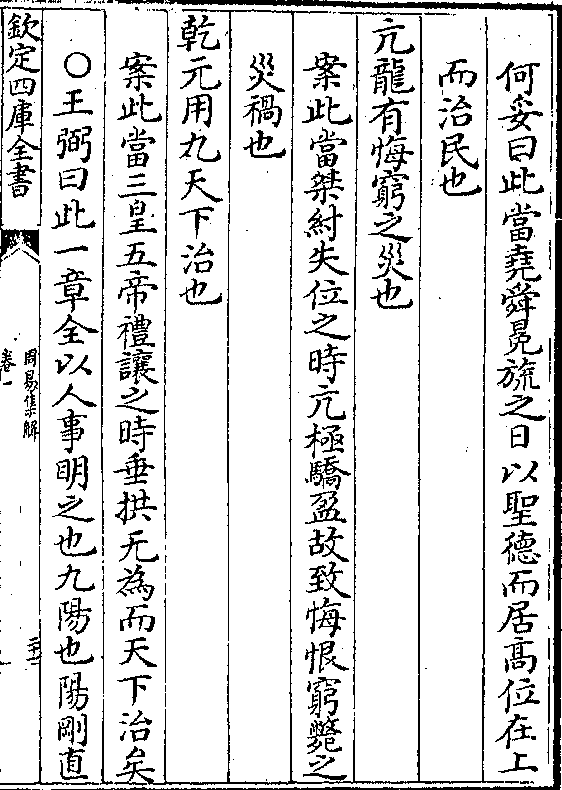 何妥曰此當堯舜冕旒之日以聖德而居髙位在上
而治民也
亢龍有悔窮之災也
案此當桀紂失位之時亢極驕盈故致悔恨窮斃之
災禍也
乾元用九天下治也
案此當三皇五帝禮讓之時垂拱无為而天下治矣
○王弼曰此一章全以人事明之也九陽也陽剛直
欽定四庫全書
周易集解
卷一